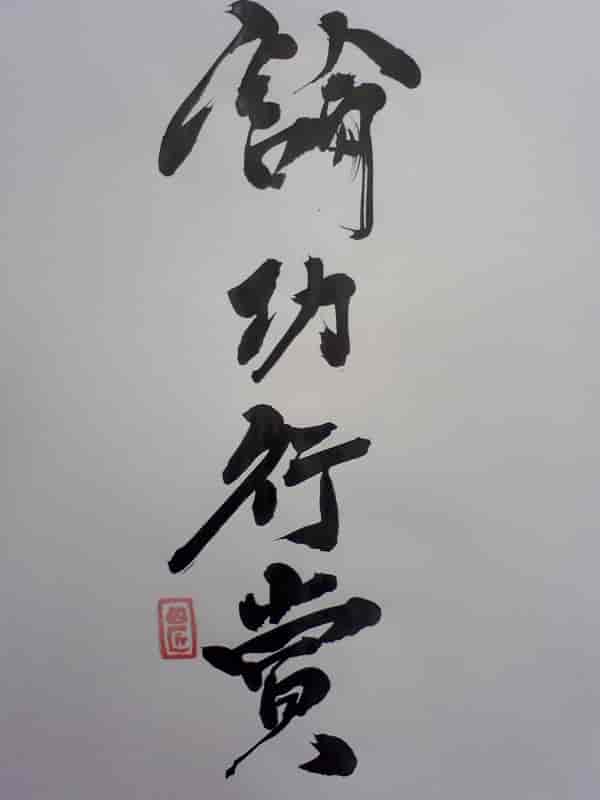 論功行賞